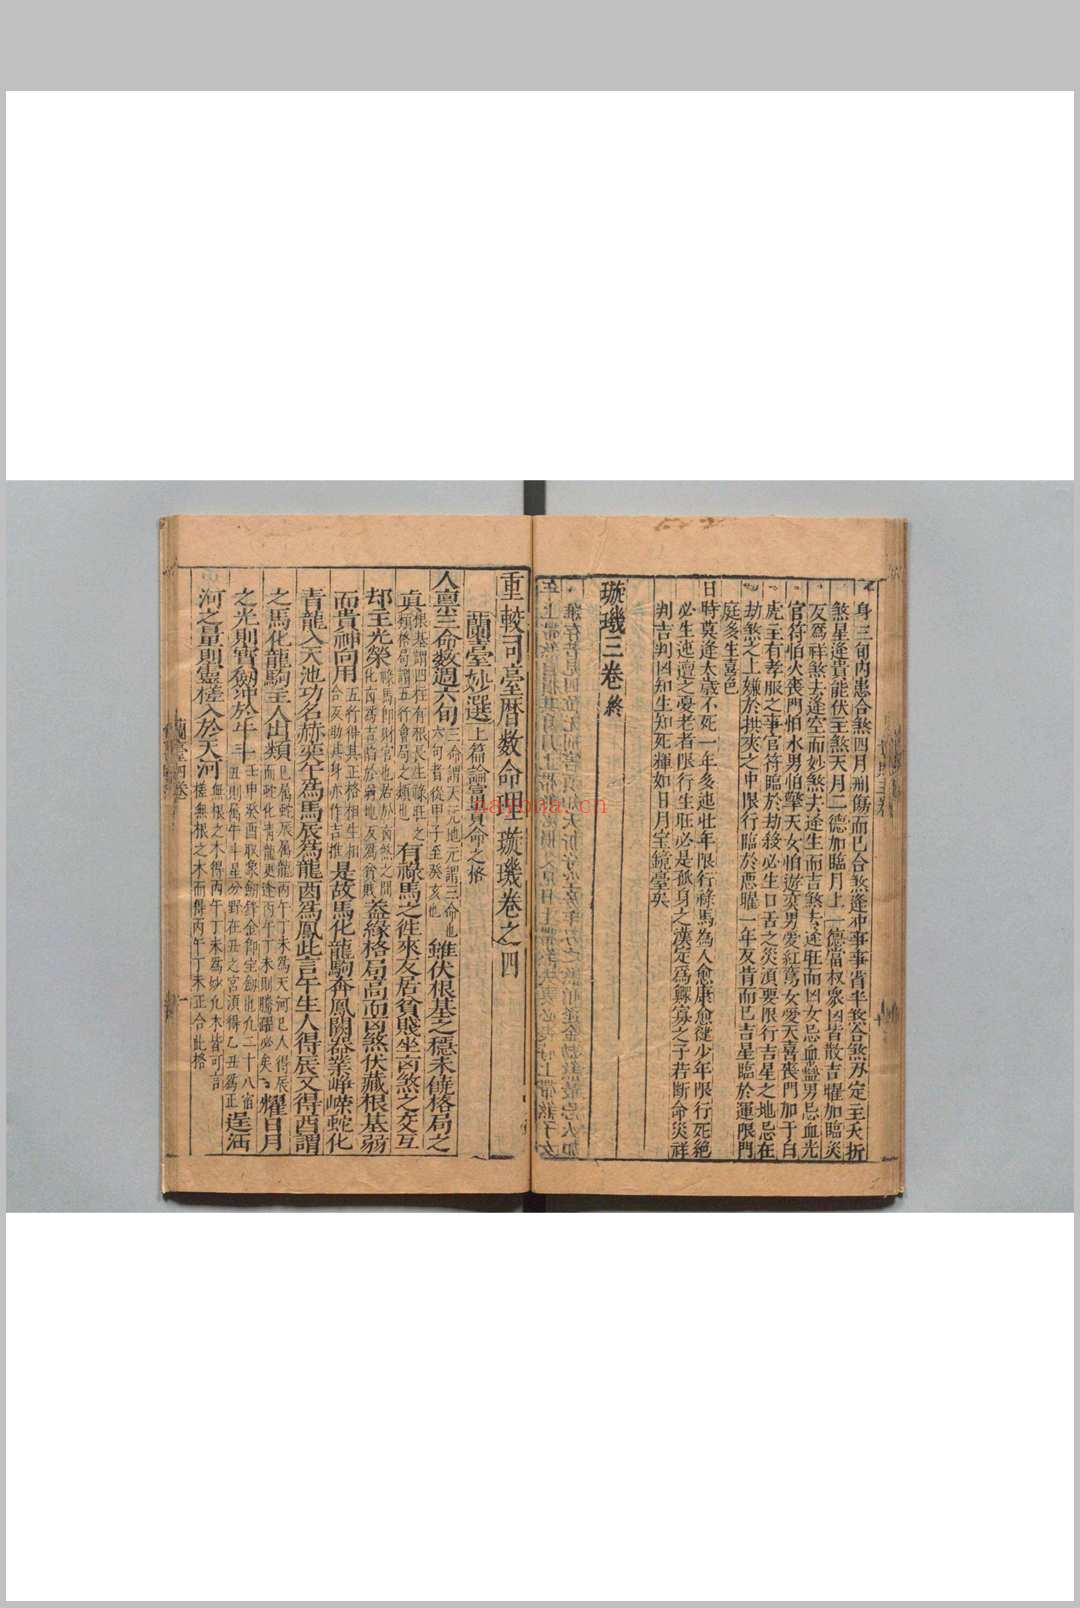 身三旬內患合煞四月刑傷而已合煞逢冲事事省半煞合煞刃定主夭折
煞星逢貴能伏主煞天月二德加臨月上一德當权衆凶皆散吉曜加臨災
友爲祥煞去逢空而妙煞去逢生而吉煞去逢旺而凶女忌血盬男忌血光
官符怕火喪門怕水男怕擎天女怕遊奕男爱紅鸾女爱天喜喪門加于白
虎主有孝服之事官符臨於劫殺必生口舌之災湏要限行吉星之地忌在
劫煞之上嫌於拱夾之中限行臨於悪曜一年友肯而已吉星臨於運限門
庭多生喜色
日時莫逢太歳不死一年多迍壮年限行禄馬為人愈康愈健少年限行死絶
必生迍邅之憂老者限行生旺必是孤身之漢定為鰥寡之子若断命災祥
判吉判凶知生知死輝如日月宝鏡臺矣
璇璣三卷終
重較司臺曆数命理璇璣卷之四
蘭臺妙選 上篇論富貴命之格
人禀三命数週六旬 三命謂天元地元謂三命也六旬者從甲子至癸亥也 雖伏根基之穩未備格局之
真 根基謂四柱有根長生祿旺之類格局謂五行會局之類也 有祿馬之徃來友居貧賤坐凶煞之交互
却主光榮 祿馬卽財官也若於凶煞之間化凶爲吉陷於弱地友爲貧賎 盖緣格局高而凶煞伏藏根基弱
而貴神向用 五行得其正格相生相合友助其身亦作吉推 是故馬化龍駒奔鳳闕器業峥嵘蛇化
青龍入天池功名赫奕午為馬辰為龍酉為鳳此言午生人得辰又得酉謂
之馬化龍駒主人出類 巳屬蛇辰属龍丙午丁未爲天河巳人得辰而蛇化青龍更逢丙午丁未則騰躍必矣 耀日月
之光則寳劔冲於牛斗 壬申癸酉取象劔鋒金卽宝劔也九二十八宿丑則属牛斗星分野在丑之宫湏得乙丑爲正 逞涵
河之量則靈槎入於天河 無根之木得丙午丁未爲妙九木皆可言槎無根之木而得丙午丁未正合此格
蘭臺四卷
一
nayona.cn